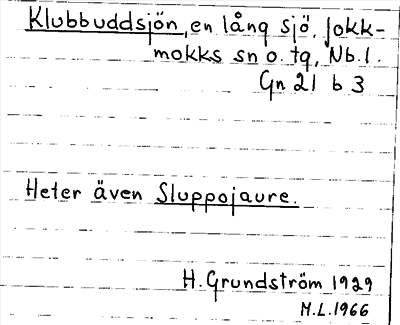 Klubbuddsjön, en lång sjö. Jokk-
mokks sn o. tg, Nb. l.
Gn 21 b 3
Heter även Sluppojaure.
H. Grundström 1929
M.L. 1966